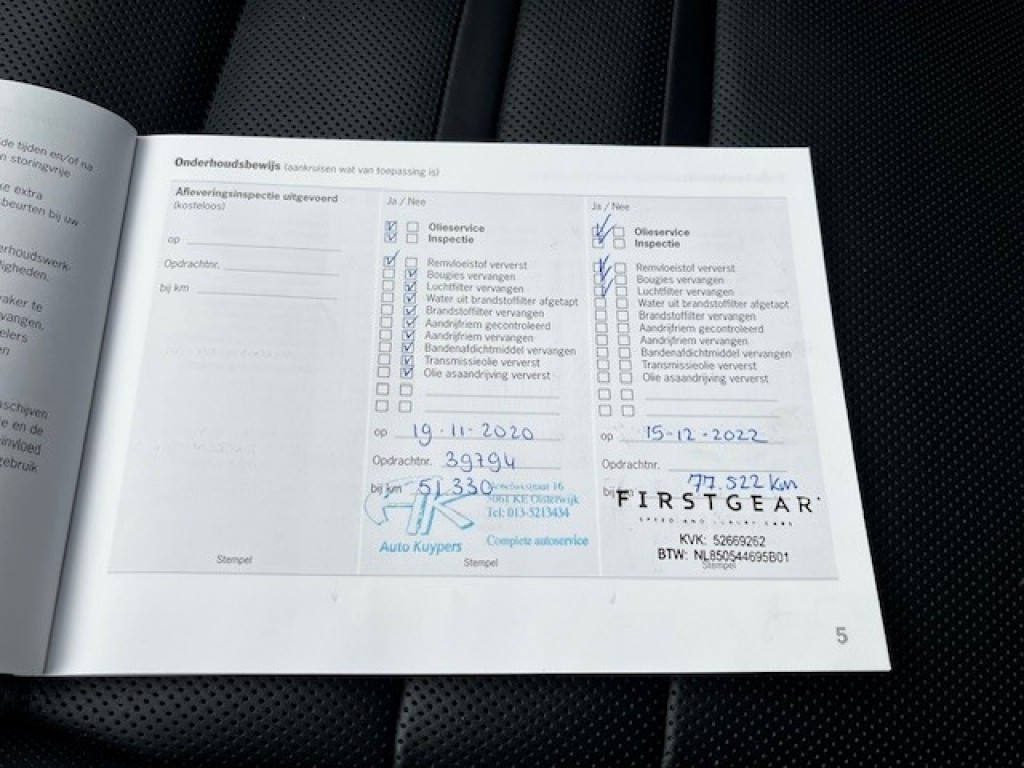 de tijden en/of na
n storingvrije
ke extra
sbeurten bij uw
erhoudswerk-
ligheden.
raker te
vangen,
elers
en
aschijven
te en de
einvloed
gebruik
Onderhoudsbewijs (aankruisen wat van toepassing is)
Afleveringsinspectie uitgevoerd
(kosteloos)
op
Opdrachtnr.
bij km
Stempel
Ja / Nee
Olieservice
Inspectie
Remvloeistof ververst
Bougies vervangen
Luchtfilter vervangen
Water uit brandstoffilter afgetapt
Brandstoffilter vervangen
Aandrijfriem gecontroleerd
Aandrijfriem vervangen
Bandenafdichtmiddel vervangen
Transmissieolie ververst
Olie asaandrijving ververst
op 19-11-2020
Opdrachtnr. 39794
bij km 51.330
16
5061 KE Oisterwijk
Tel: 013-5213434
AK
Auto Kuypers
Complete autoservice
Stempel
Ja / Nee
Olieservice
Inspectie
Remvloeistof ververst
Bougies vervangen
Luchtfilter vervangen
Water uit brandstoffilter afgetapt
Brandstoffilter vervangen
Aandrijfriem gecontroleerd
Aandrijfriem vervangen
Bandenafdichtmiddel vervangen
Transmissieolie ververst
Olie asaandrijving ververst
op 15-12-2022
Opdrachtnr.
bij km 77.522 km
FIRSTGEAR
SPEED AND LUXURY CARS
KVK: 52669262
BTW: NL850544695B01
Stempel
5